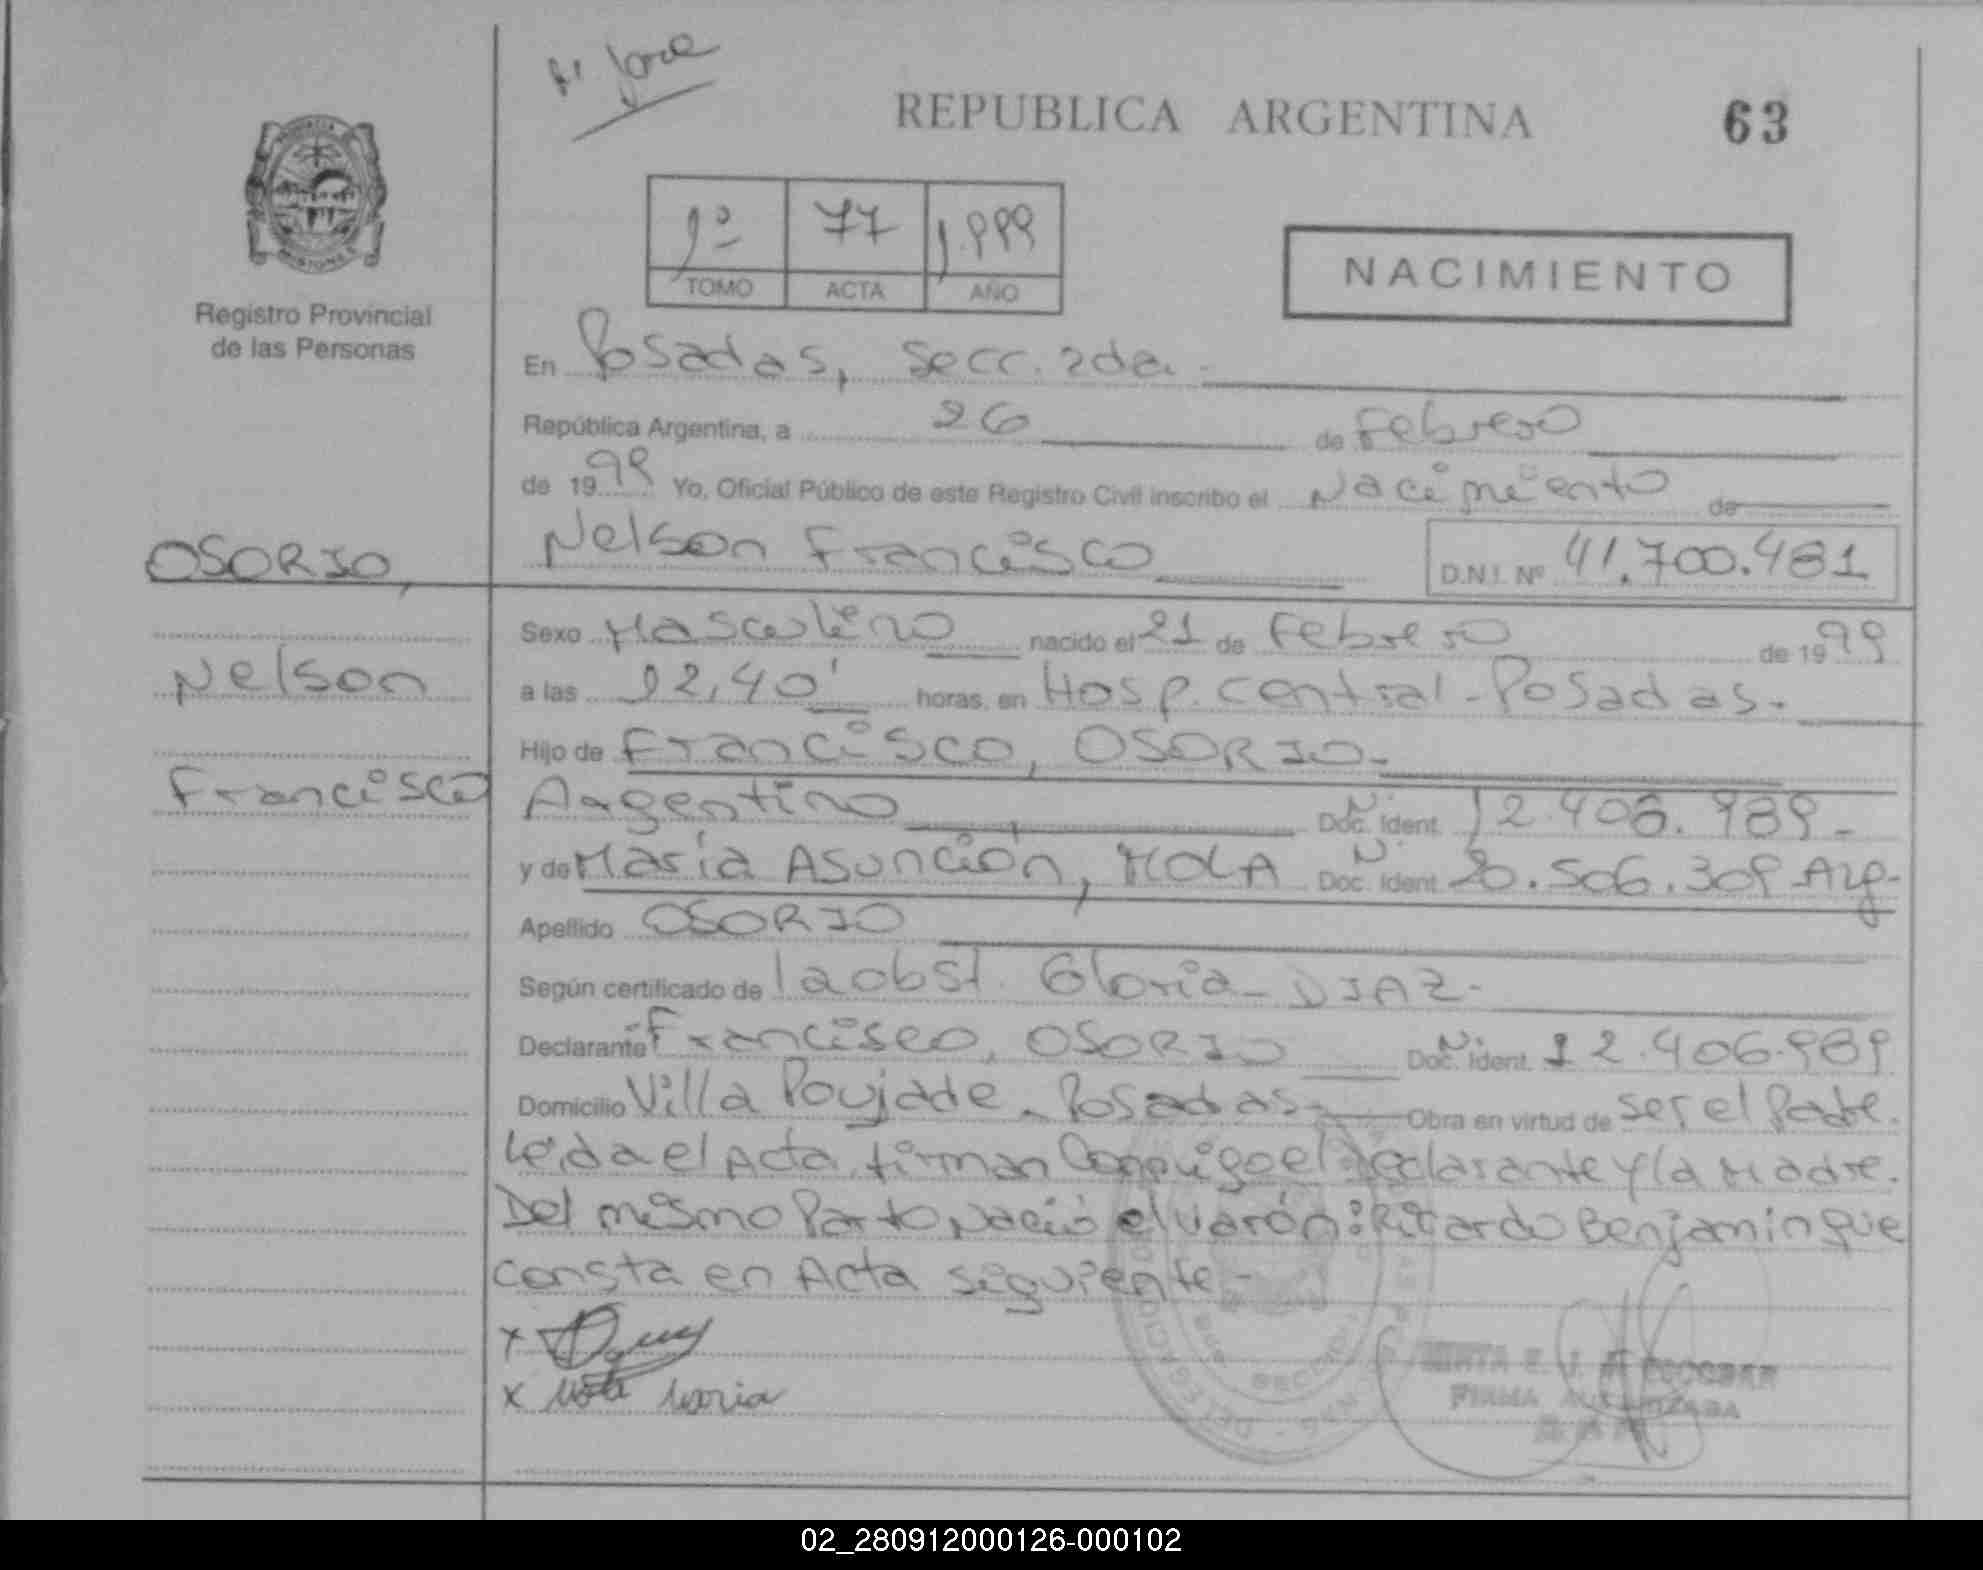 REPUBLICA ARGENTINA
63
1º 77 1.999
TOMO ACTA AÑO
NACIMIENTO
PROVINCIA
MISIONES
Registro Provincial
de las Personas
En Posadas, Secc. 2da.
República Argentina, a 26 de Febrero
de 1999 Yo, Oficial Público de este Registro Civil inscribo el Nacimiento de
Nelson Francisco D.N.I. Nº 41.700.481
OSORIO,
Nelson
Francisco
Sexo Masculino nacido el 21 de Febrero de 1999
a las 12,40' horas, en Hosp. Central - Posadas.
Hijo de Francisco, OSORIO.-
Argentino Doc. Ident. 12.406.989-
y de María Asunción, MOLA Doc. Ident. 20.506.309 Arg-
Apellido OSORIO
Según certificado de la obst. Gloria - DIAZ-
Declarante Francisco, OSORIO Doc. Ident. 12.406.989
Domicilio Villa Poujade - Posadas- Obra en virtud de ser el Padre.
Leida el Acta, firman Conmigo el declarante y la Madre.
Del mismo Parto Nació el varón: Ricardo Benjamin que
consta en Acta siguiente-
x
x Mola Maria
ESCOBAR
FIRMA AUTORIZADA
02_280912000126-000102